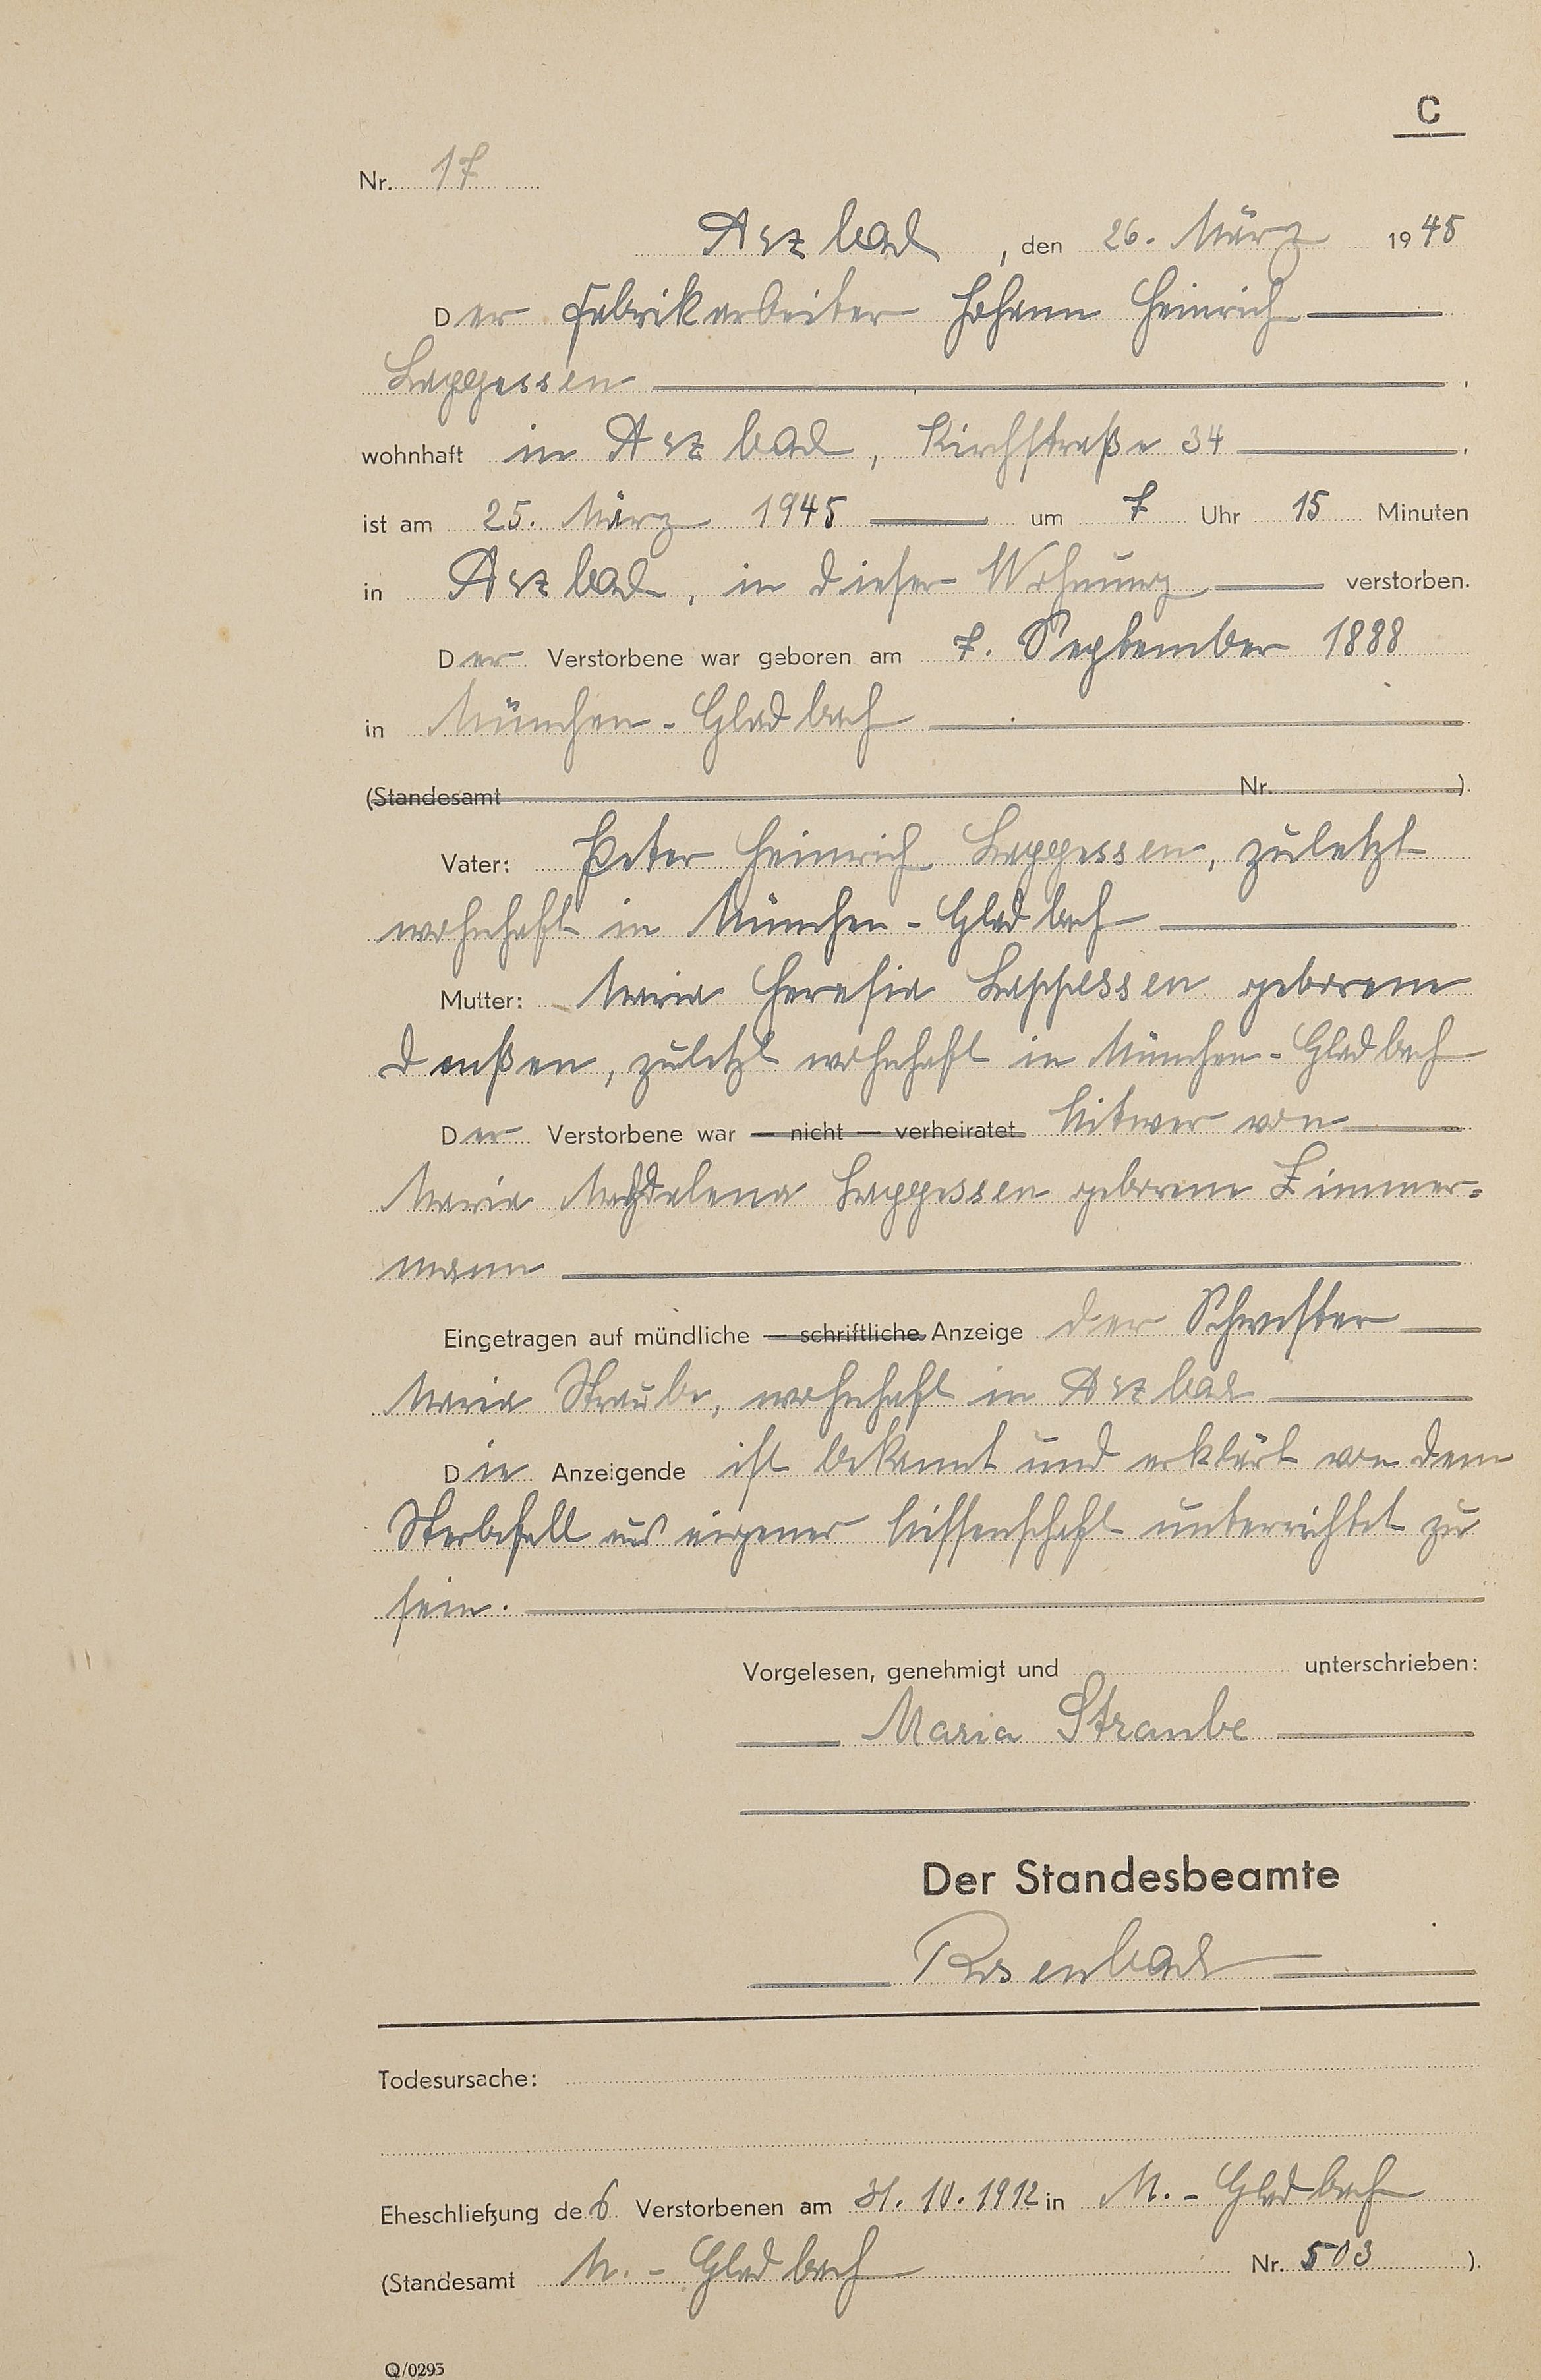 C
Nr. 17
Arzbach, den 26. März 1945
Der Fabrikarbeiter Johann Heinrich
Lappessen
wohnhaft in Arzbach, Kirchstraße 34
ist am 25. März 1945 um 7 Uhr 15 Minuten
in Arzbach, in dieser Wohnung verstorben.
Der Verstorbene war geboren am 7. September 1888
in München-Gladbach
(Standesamt Nr. ).
Vater: Peter Heinrich Lappessen, zuletzt
wohnhaft in München-Gladbach
Mutter: Maria Theresia Lappessen geborene
Deußen, zuletzt wohnhaft in München-Gladbach
Der Verstorbene war — nicht — verheiratet Witwer von
Maria Magdalena Lappessen geborene Zimmer-
mann
Eingetragen auf mündliche — schriftliche Anzeige der Schwester
Maria Straube, wohnhaft in Arzbach
Die Anzeigende ist bekannt und erklärt von dem
Sterbefall aus eigener Wissenschaft unterrichtet zu
sein.
Vorgelesen, genehmigt und unterschrieben:
Maria Straube
Der Standesbeamte
Rosenbach
Todesursache:
Eheschließung des Verstorbenen am 31.10.1912 in M.-Gladbach
(Standesamt M.-Gladbach Nr. 503 ).
Q/0293